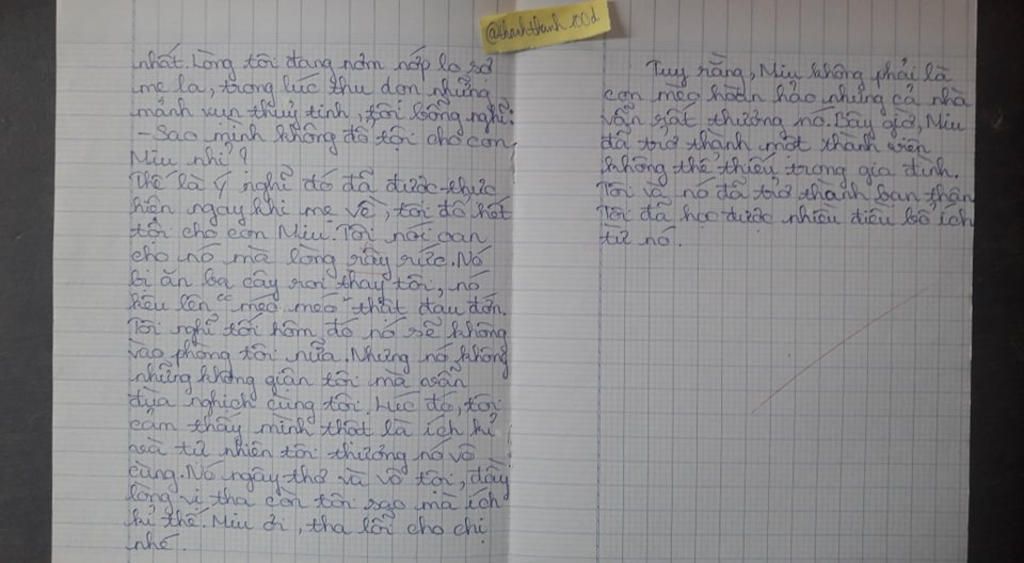 @thanhthanh100d
nhất. Lòng tôi đang nơm nớp lo sợ
mẹ la, trong lúc thu dọn những
mảnh vụn thuỷ tinh, tôi bỗng nghĩ:
- Sao mình không đổ tội cho con
Miu nhỉ?
Thế là ý nghĩ đó đã được thực
hiện ngay khi mẹ về, tôi đổ hết
tội cho con Miu. Tôi nói oan
cho nó mà lòng rầy rứt. Nó
bị ăn ba cây roi thay tôi, nó
kêu lên "méo méo" thật đau đớn.
Tôi nghĩ tối hôm đó nó sẽ không
vào phòng tôi nữa. Nhưng nó không
những không giận tôi mà vẫn
đùa nghịch cùng tôi. Lúc đó, tôi
cảm thấy mình thật là ích kỉ
và tự nhiên tôi thương nó vô
cùng. Nó ngây thơ và vô tội, đầy
lòng vị tha còn tôi sao mà ích
kỉ thế. Miu ơi, tha lỗi cho chị
nhé.
Tuy rằng, Miu không phải là
con mèo hoàn hảo nhưng cả nhà
vẫn rất thương nó. Bây giờ, Miu
đã trở thành một thành viên
không thể thiếu trong gia đình.
Tôi và nó đã trở thành bạn thân.
Tôi đã học được nhiều điều bổ ích
từ nó.